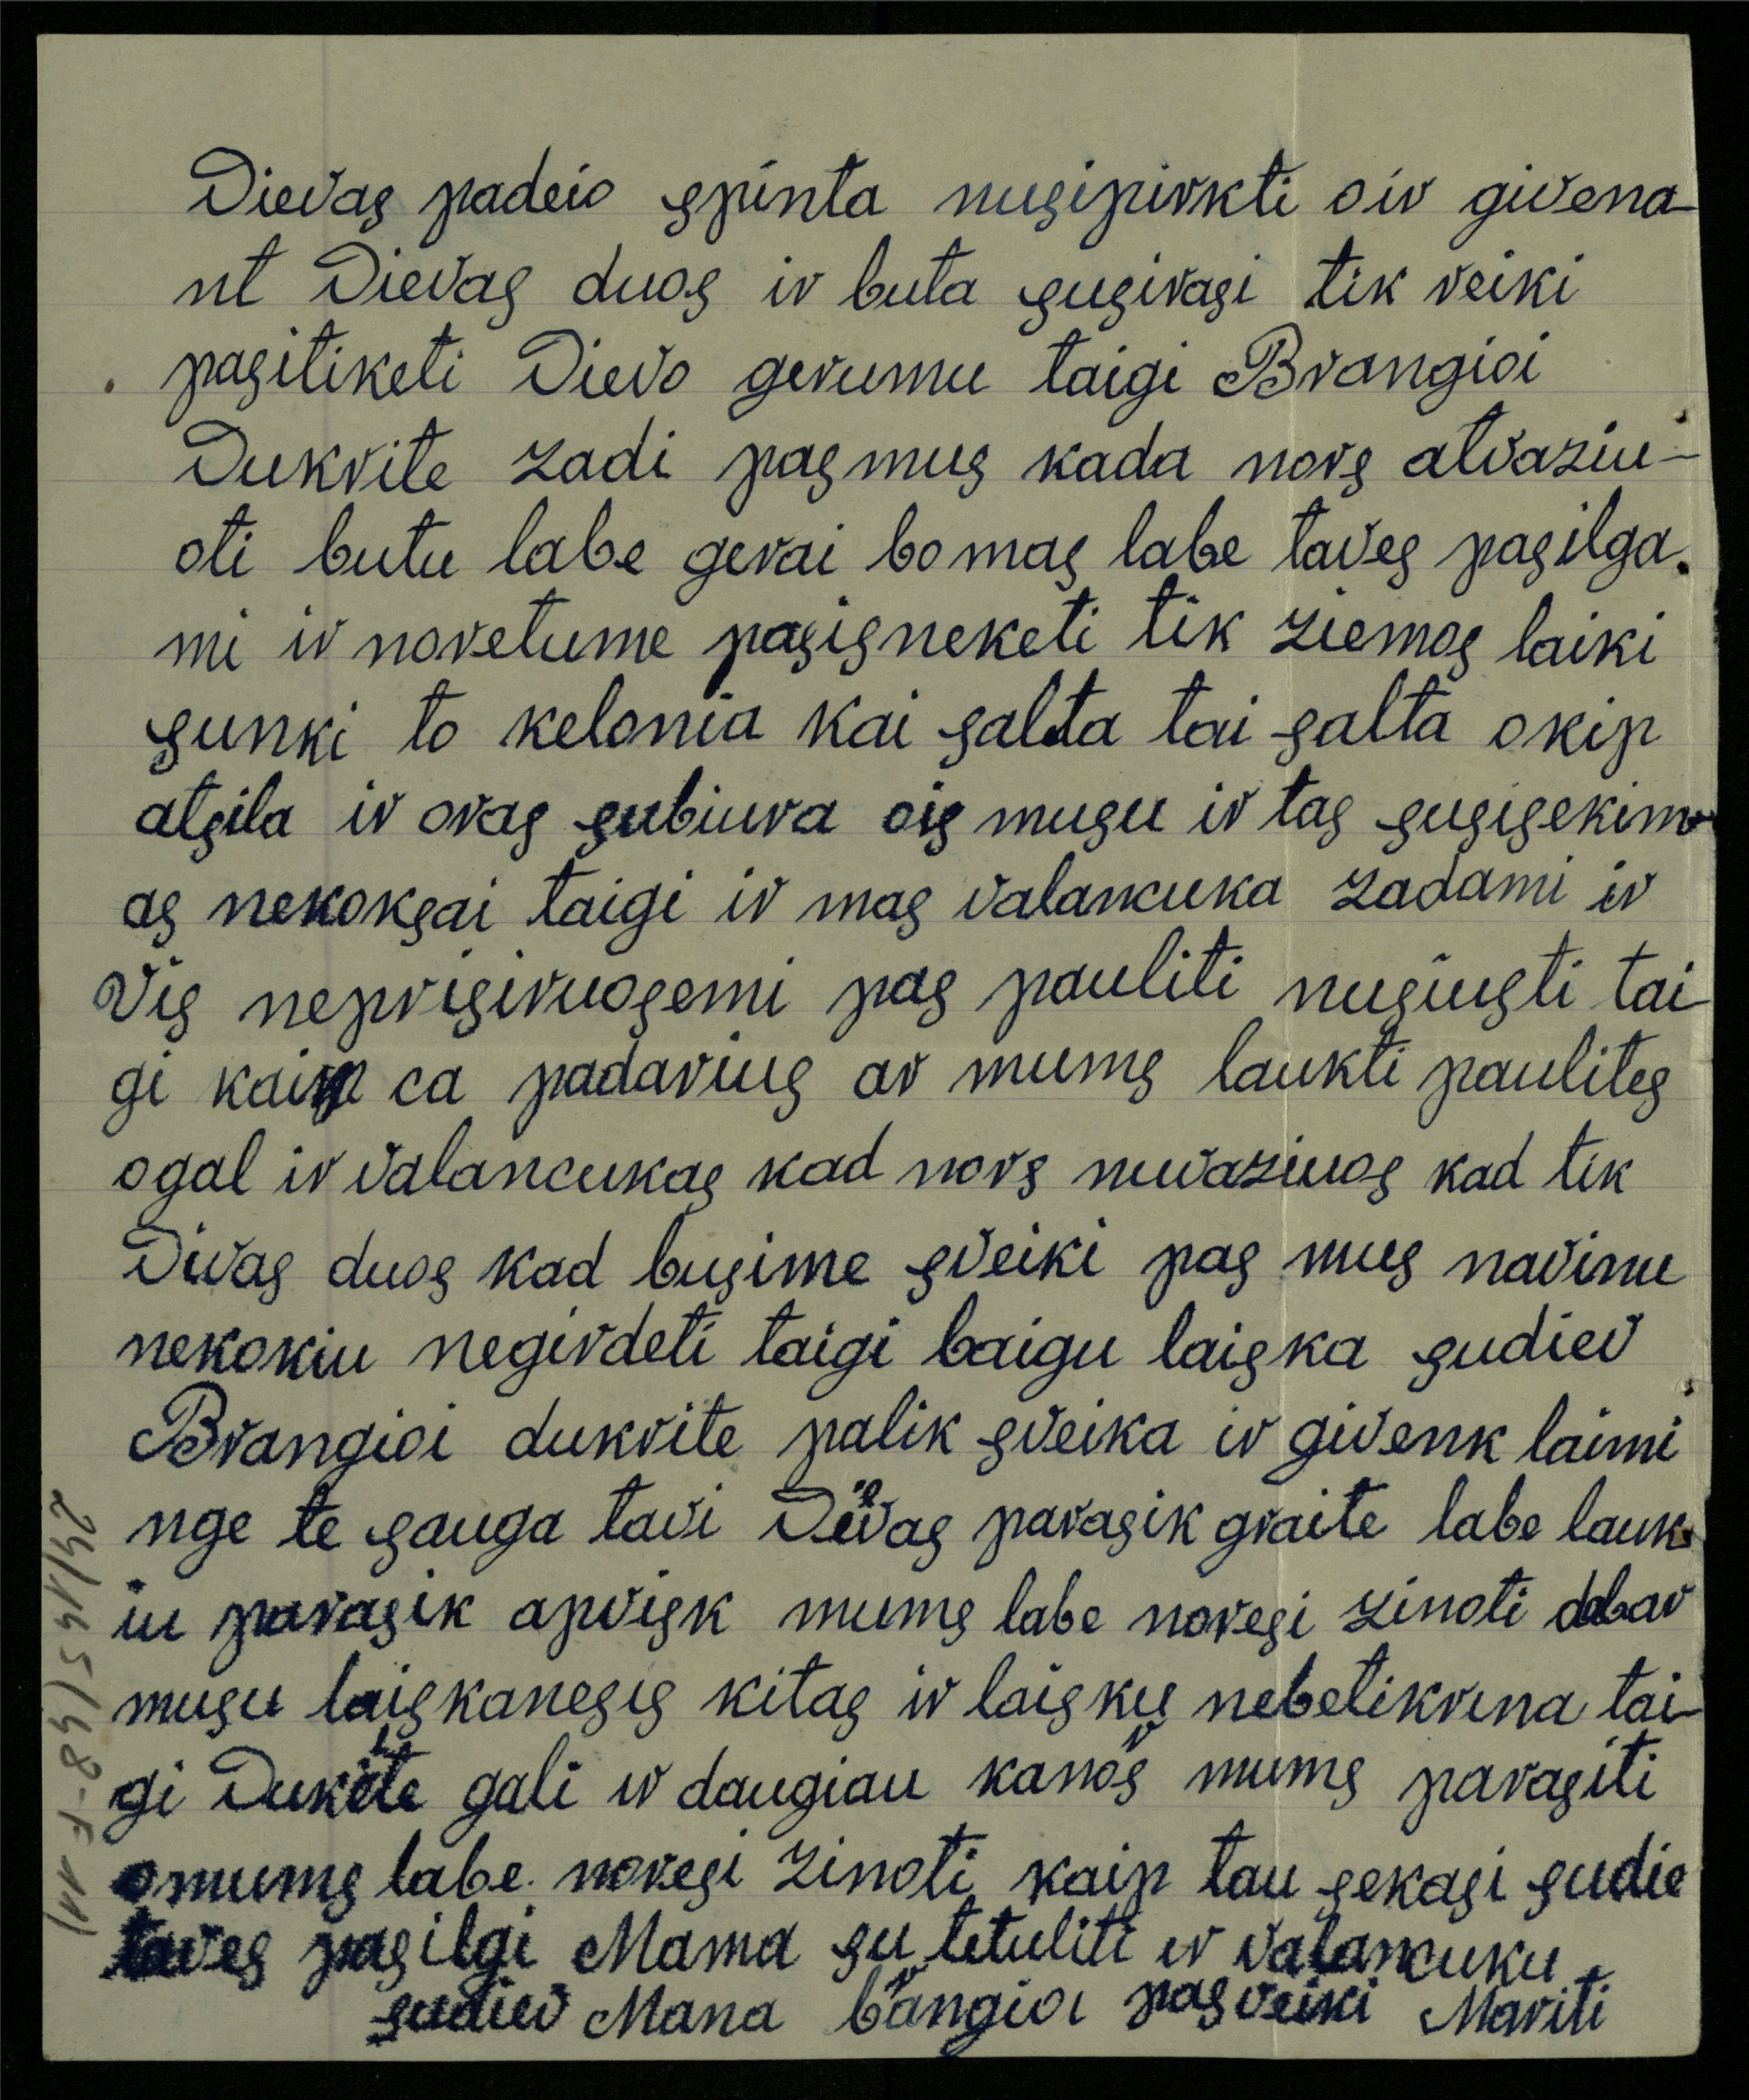 Dievas padeio spinta nusipirkti oir givena-
nt Dievas duos ir buta susirasi tik reiki
pasitiketi Dievo gerumu taigi Brangioi
Dukrite zadi pas mus kada nors atvaziu-
oti butu labe gerai bo mas labe taves pasilga.
mi ir noretume pasisneketi tik ziemos laiki
sunki to kelonia kai salta tai salta okip
atsila ir oras subiura ois musu ir tas susisekim
as nekoksai taigi ir mas valancuka zadami ir
Vis neprisiruosemi pas pauliti nusiusti tai-
gi kaip ca padarius ar mums laukti paulites
ogal ir valancukas kad nors nuvaziuos kad tik
Divas duos kad busime sveiki pas mus navinu
nekokiu negirdeti taigi baigu laiska sudiev
Brangioi dukrite palik sveika ir givenk laimi
nge te sauga tavi Dievas parasik graite labe lauk
iu parasik aprisk mums labe noresi zinoti dabar
musu laiskanesis kitas ir laisku nebetikrina tai-
gi Dukrite gali ir daugiau kanors mums parasiti
omums labe noresi zinoti kaip tau sekasi sudie
taves pasilgi Mama su tetuliti ir valancuku
sudiev Mana brangioi pasveiki Mariti
24/145(48-F111)